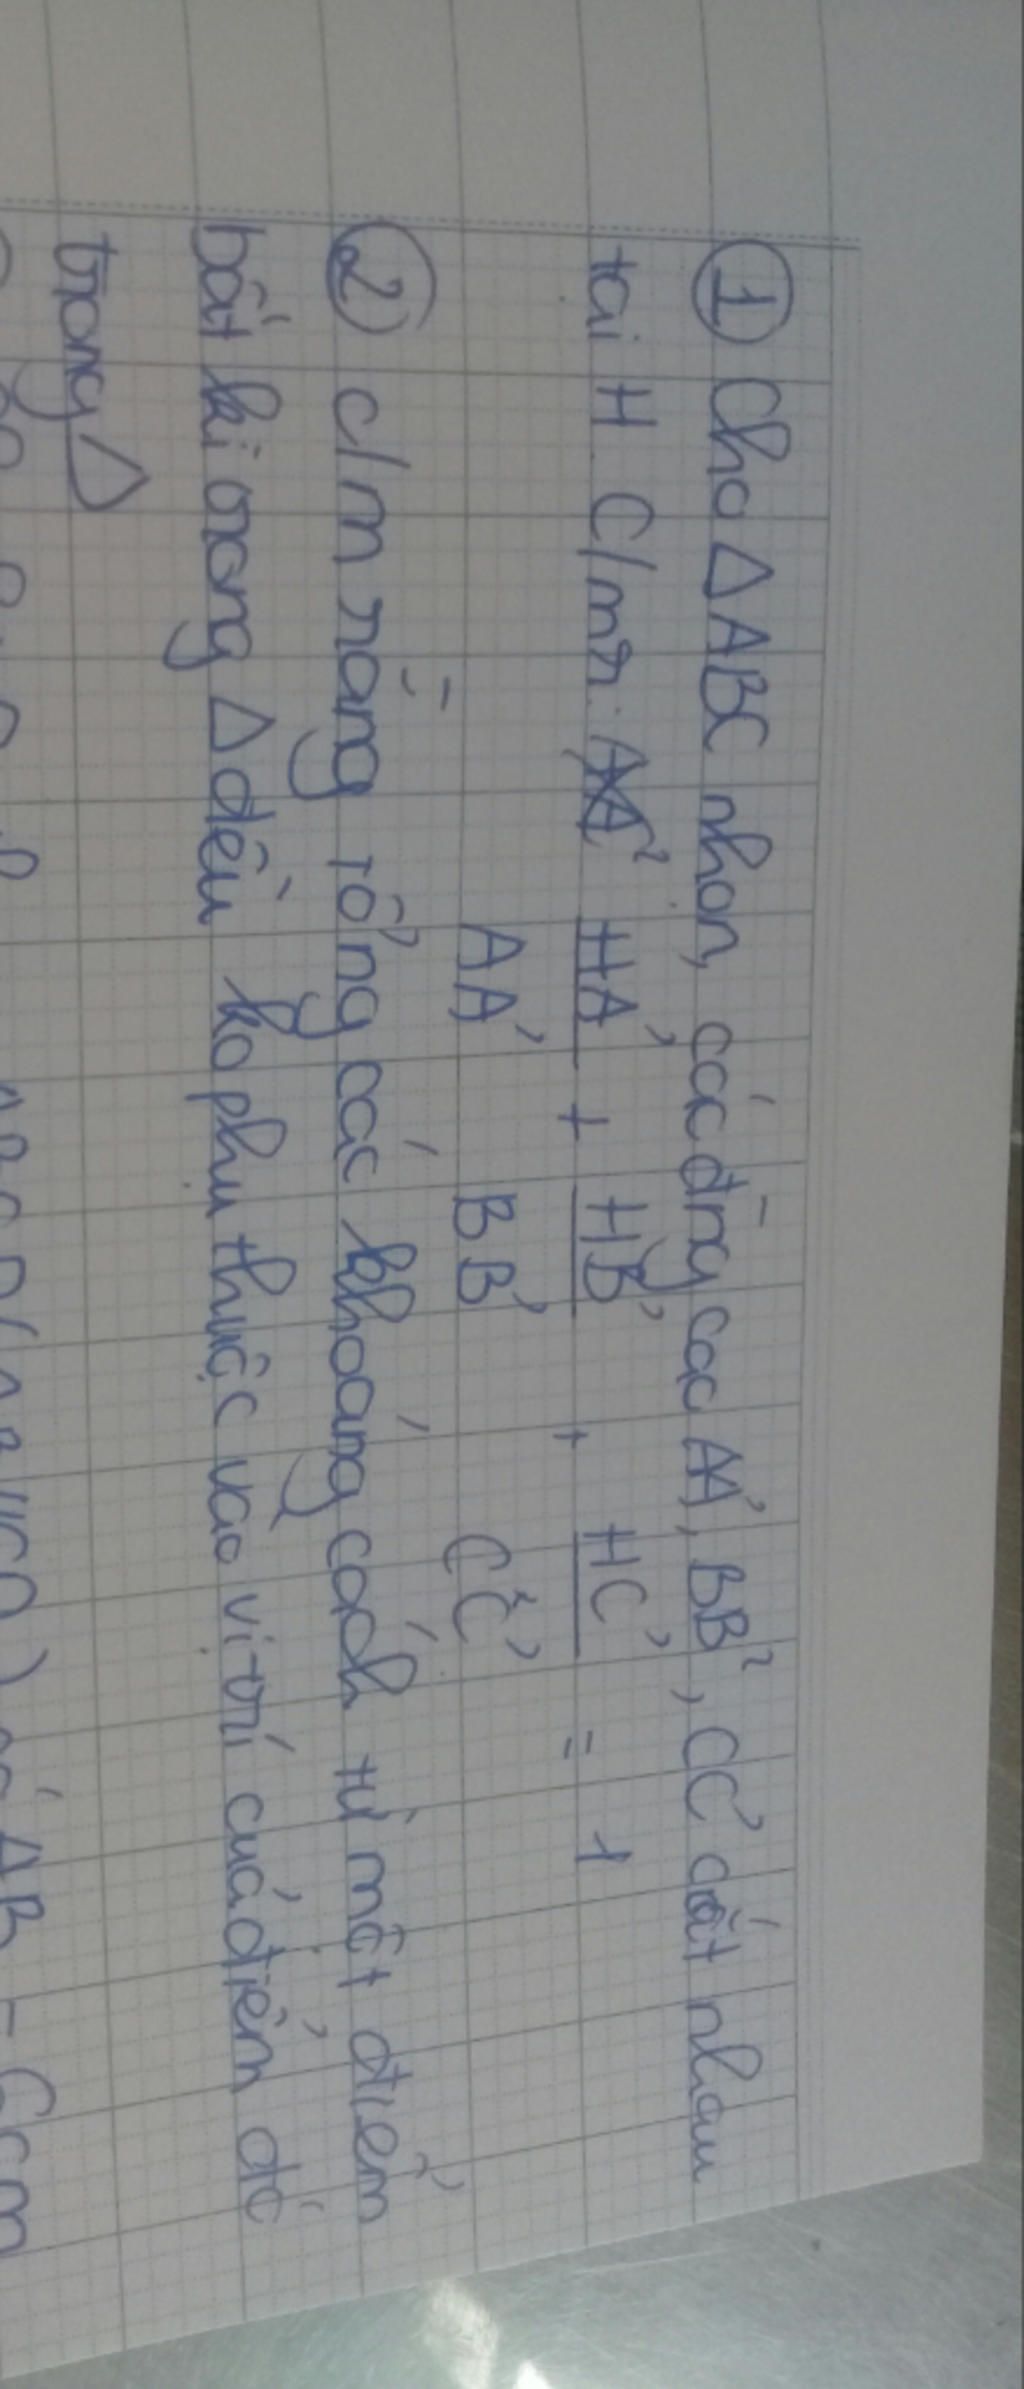 ① Cho Δ ABC nhọn, các đng cac AA', BB', CC' cắt nhau
tại H C/mr: HA' + HB' + HC' = 1
AA' BB' CC'
② c/m rằng tổng các khoảng cách từ một điểm
bất kì trong Δ đều ko phụ thuộc vào vị trí của điểm đó
trong Δ